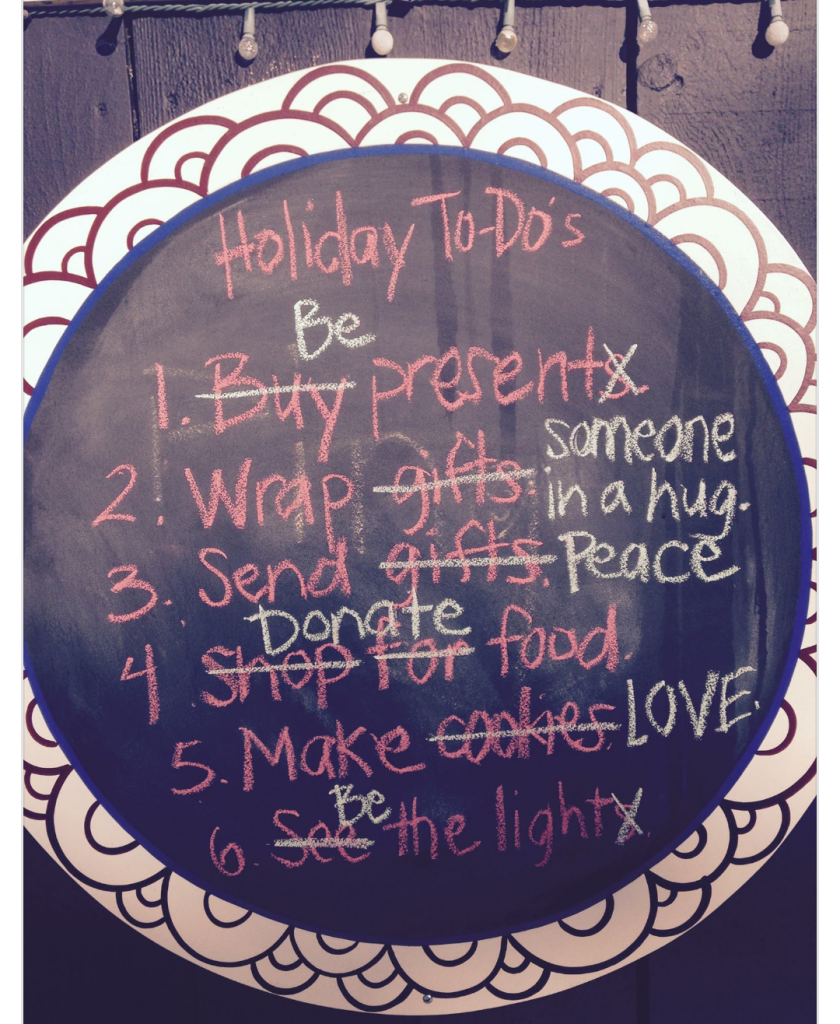 Holiday To-Do's
Be
1. Buy presents.
someone
2. Wrap gifts. in a hug.
3. Send gifts. Peace
Donate
4 Shop for food.
5. Make cookies. LOVE.
Be
6. See the lights.